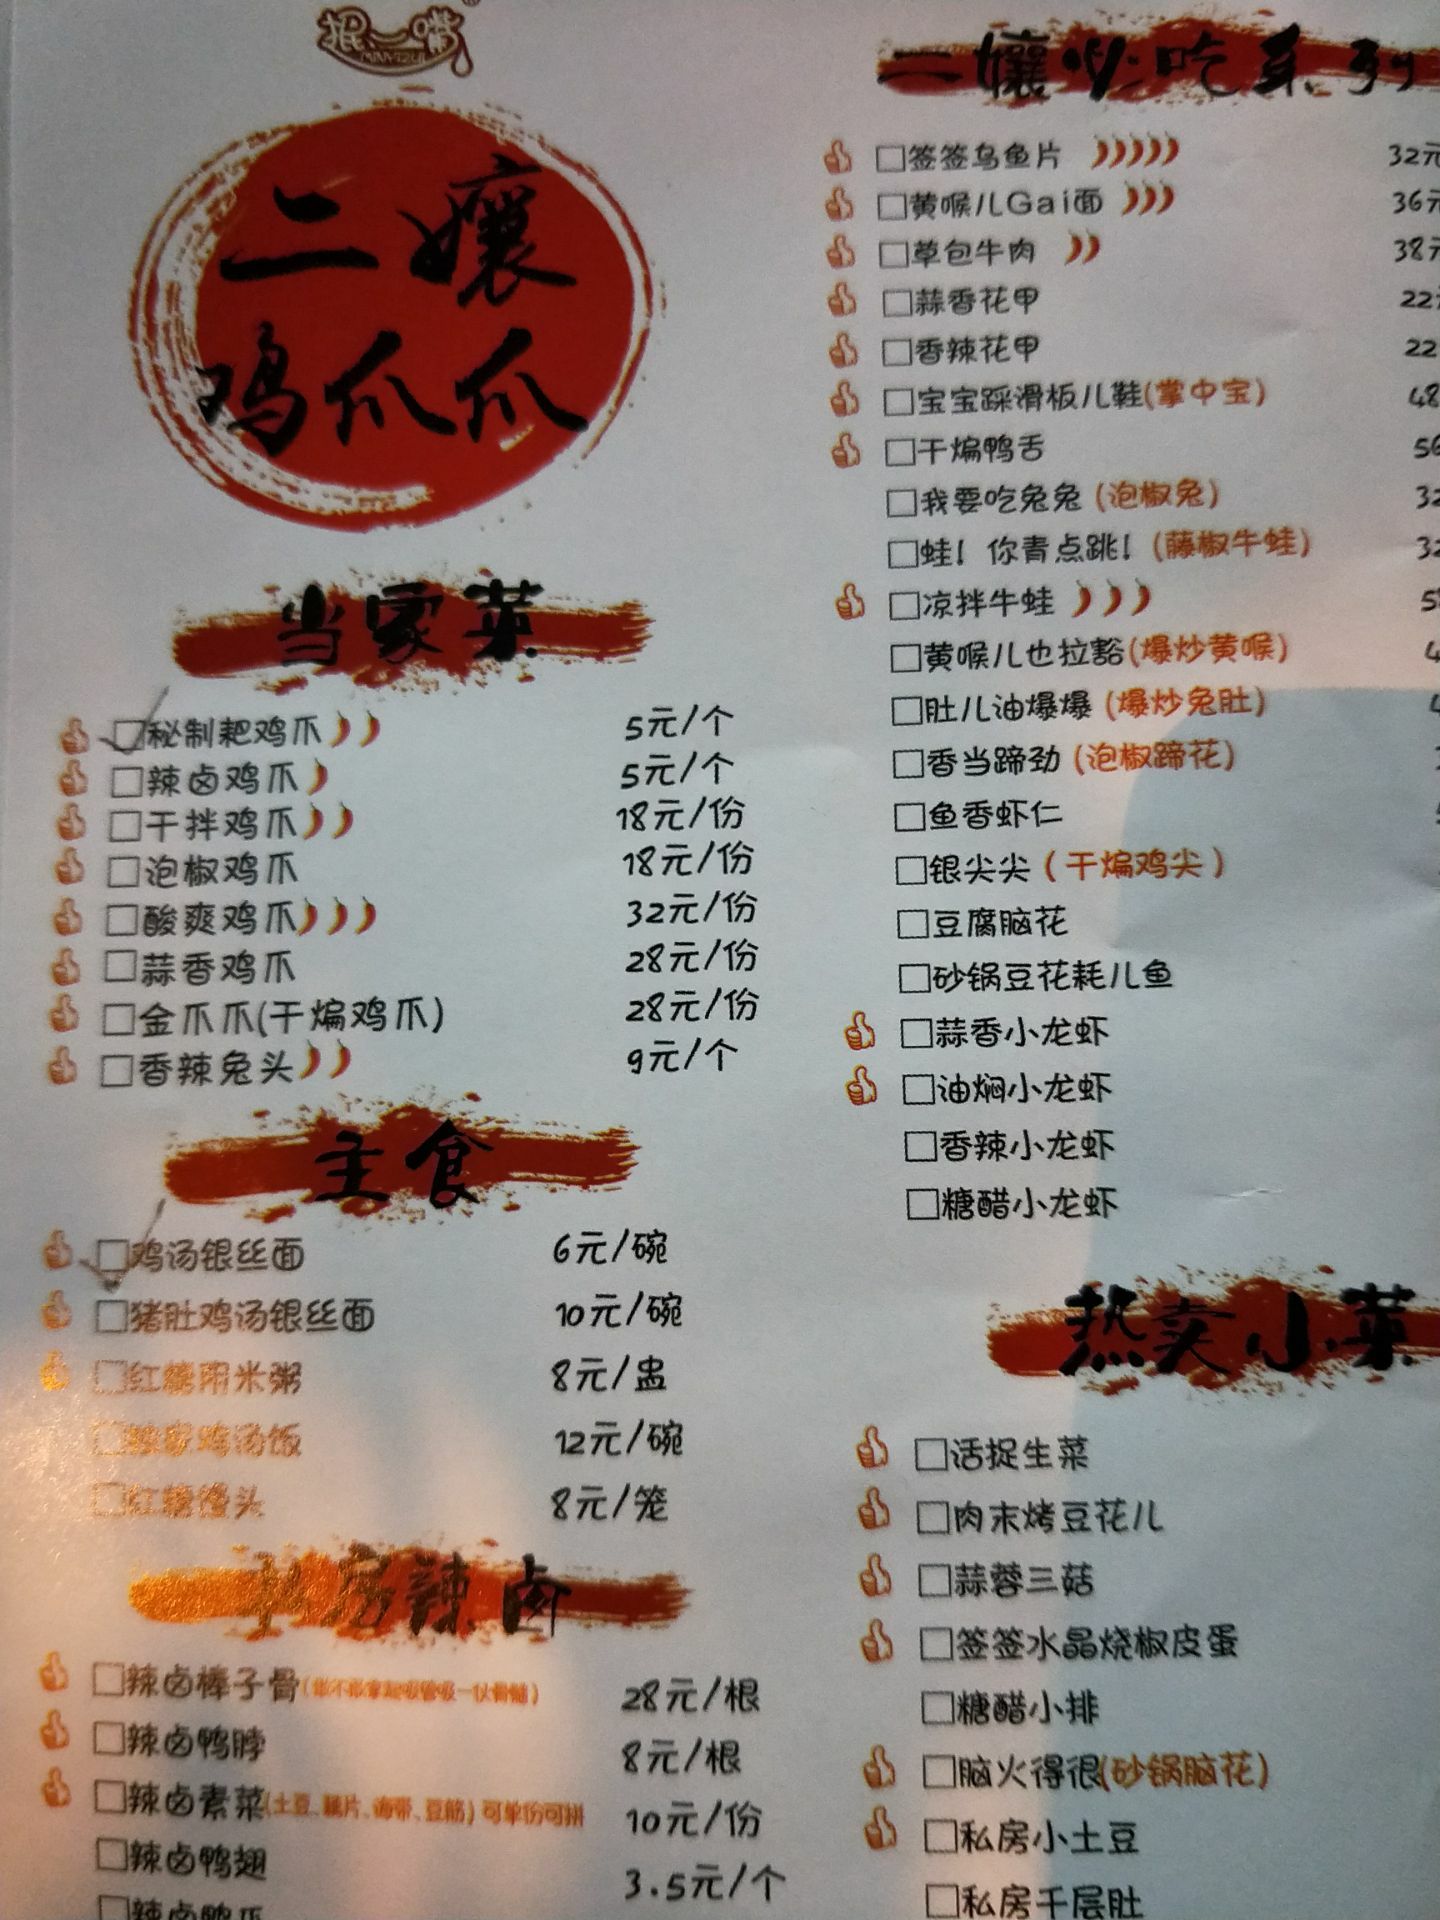 抿一嘴
二孃
鸡爪爪
当家菜
秘制耙鸡爪 5元/个
辣卤鸡爪 5元/个
干拌鸡爪 18元/份
泡椒鸡爪 18元/份
酸爽鸡爪 32元/份
蒜香鸡爪 28元/份
金爪爪(干煸鸡爪) 28元/份
香辣兔头 9元/个
主食
鸡汤银丝面 6元/碗
猪肚鸡汤银丝面 10元/碗
红糖用米粥 8元/盅
鸡汤饭 12元/碗
红糖馒头 8元/笼
私房辣卤
辣卤棒子骨 28元/根
辣卤鸭脖 8元/根
辣卤素菜(土豆、藕片、海带、豆筋)可单份可拼 10元/份
辣卤鸭翅 3.5元/个
辣卤鸭爪
二孃必吃系列
签签乌鱼片 32元
黄喉儿Gai面 36元
草包牛肉 38元
蒜香花甲 22元
香辣花甲 22
宝宝踩滑板儿鞋(掌中宝) 48
干煸鸭舌 56
我要吃兔兔(泡椒兔) 32
蛙!你青点跳!(藤椒牛蛙) 32
凉拌牛蛙 58
黄喉儿也拉豁(爆炒黄喉) 4
肚儿油爆爆(爆炒兔肚) 4
香当蹄劲(泡椒蹄花)
鱼香虾仁
银尖尖(干煸鸡尖)
豆腐脑花
砂锅豆花耗儿鱼
蒜香小龙虾
油焖小龙虾
香辣小龙虾
糖醋小龙虾
热卖小菜
活捉生菜
肉末烤豆花儿
蒜蓉三菇
签签水晶烧椒皮蛋
糖醋小排
脑火得很(砂锅脑花)
私房小土豆
私房千层肚